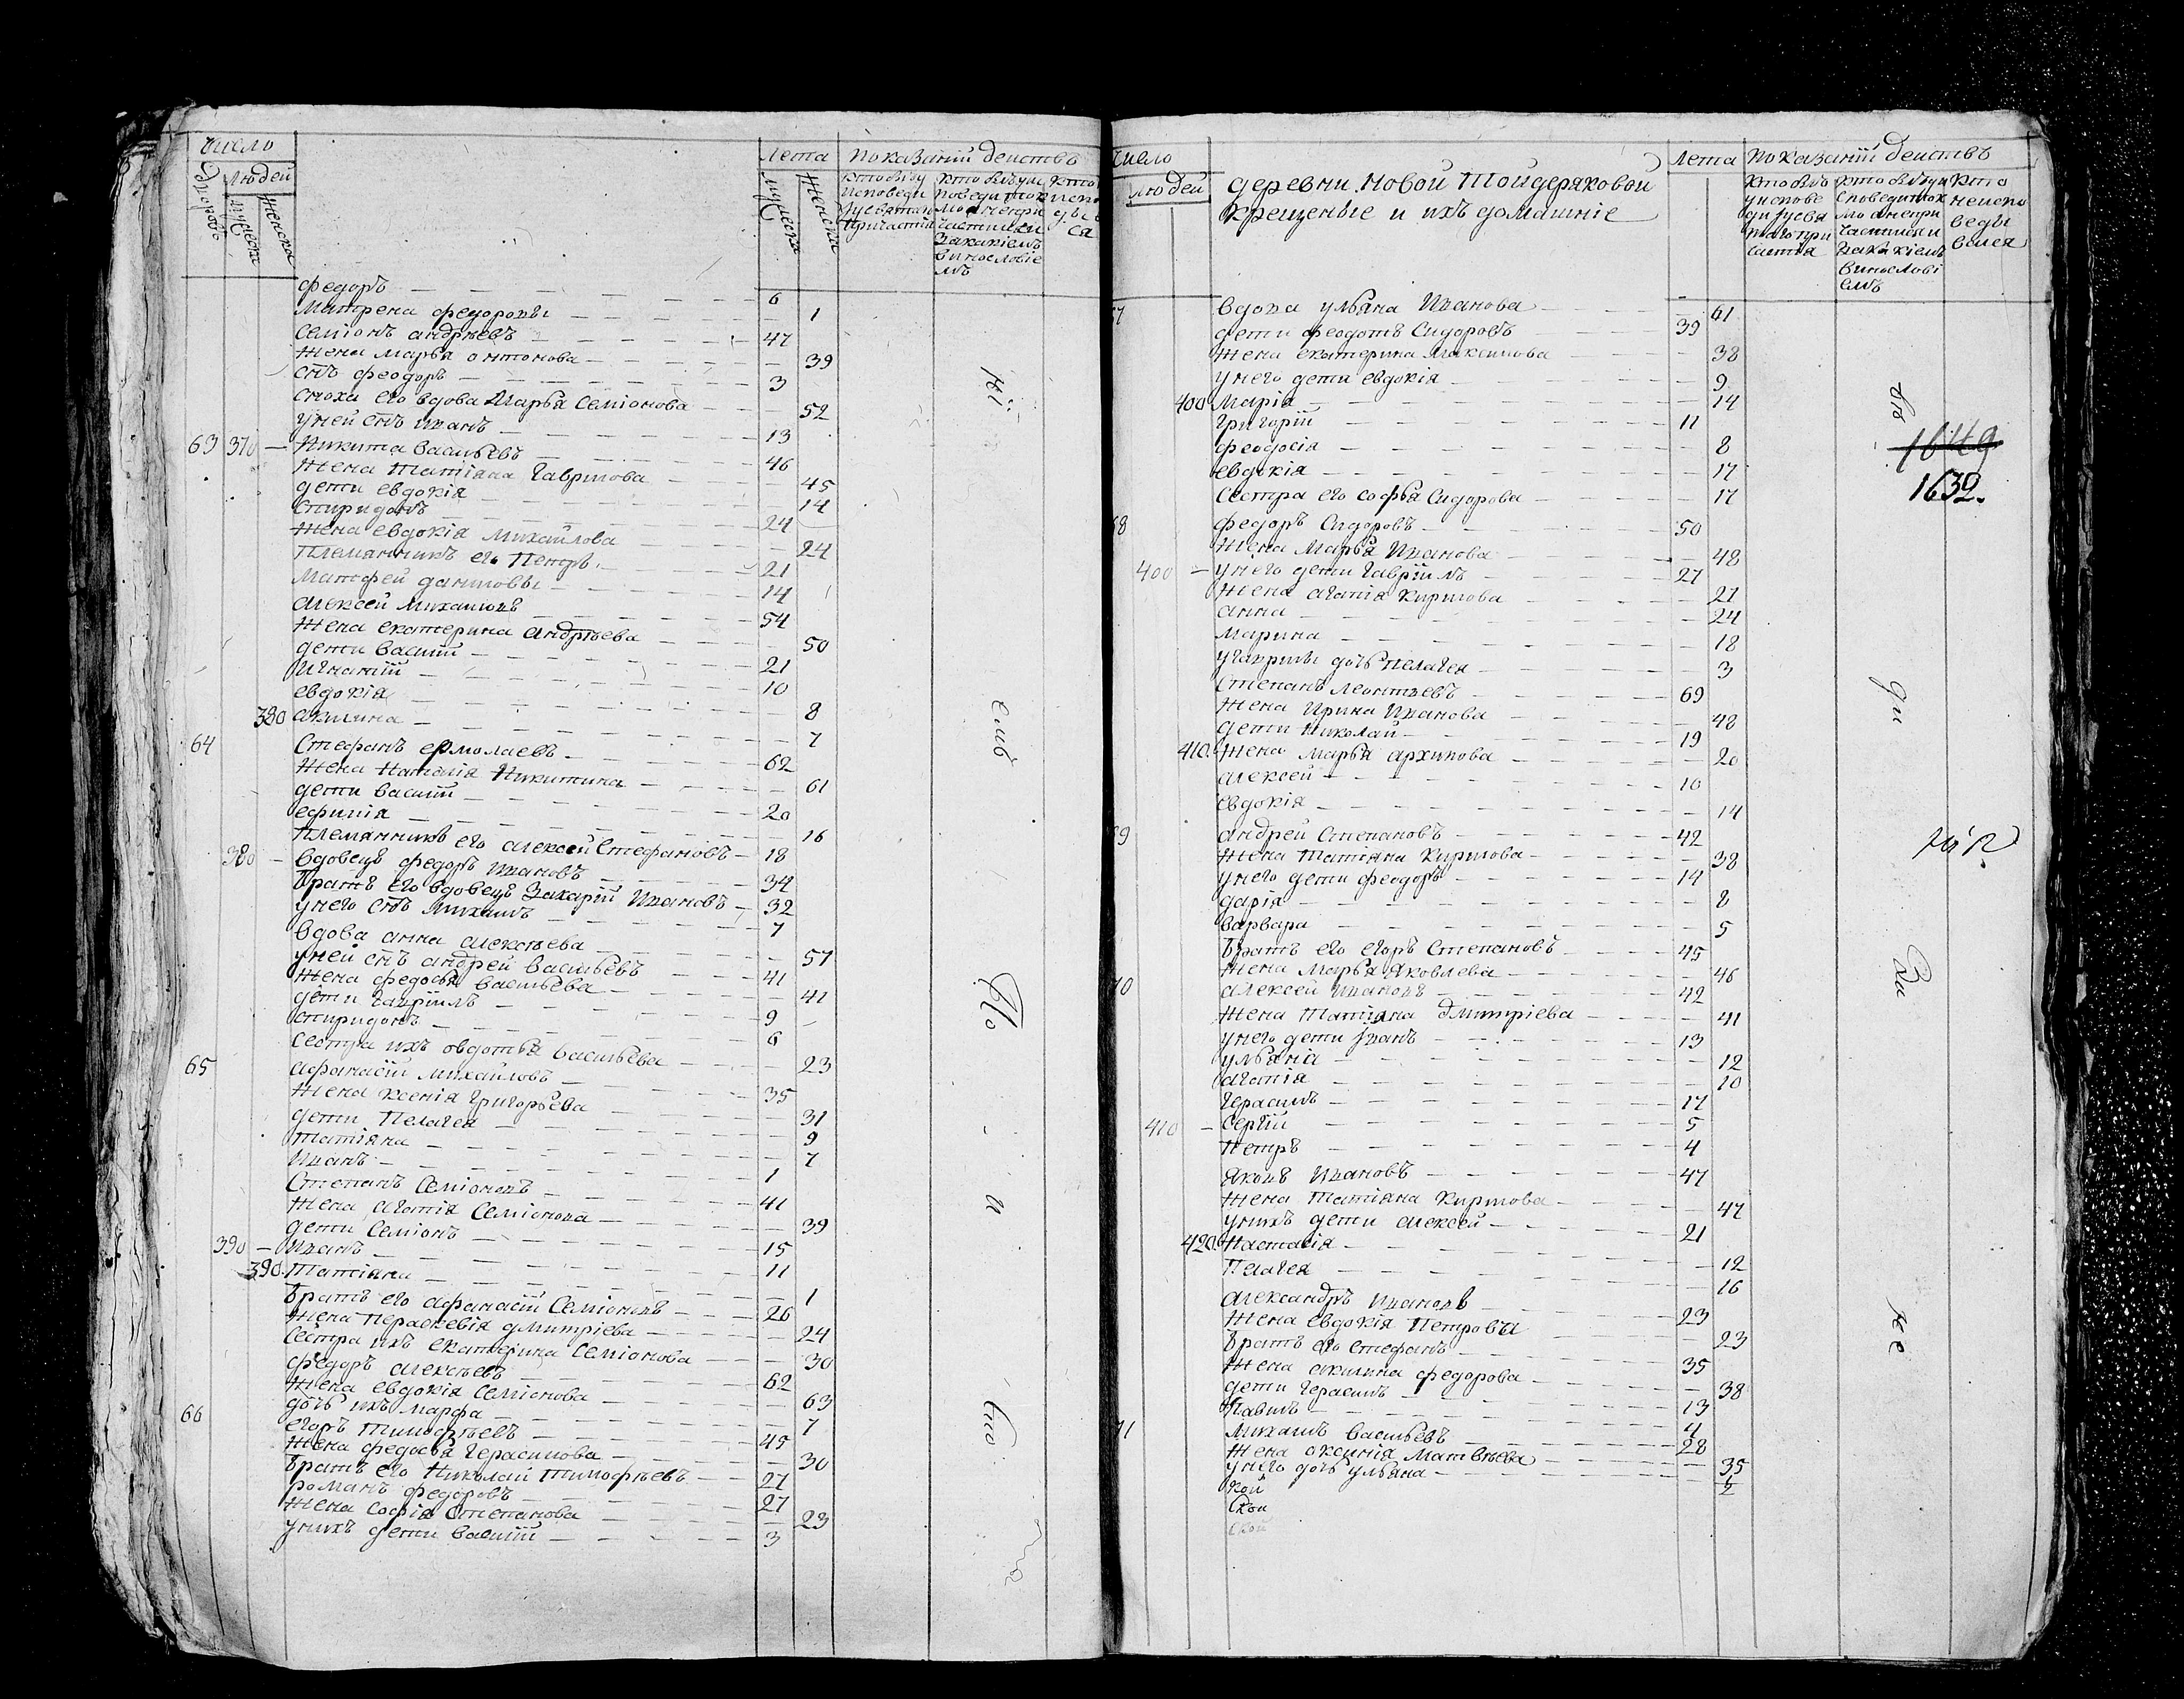 Число
Дворовъ
Людей
мужеска
женска
Лета
мужеска
женска
Показаніи действъ
федоръ 6
Матрена федоровы 1
Семіонъ андреевъ 47
жена марья онтонова 39
снъ феодоръ 3
сноха его вдова Марья Семіонова 52
у ней снъ иванъ 13
63 370 Никита васильевъ 46
жена татіана гаврилова 45
дети евдокія 14
спиридонъ 24
жена евдокія михаилова 24
племянникъ его петръ 21
матфей даниловы 14
алексей михаиловъ 54
жена екатерина андреева 50
дети василій 21
игнатій 10
евдокія 8
380 акилина 7
64 Стефанъ ермолаевъ 62
жена наталія никитина 61
дети василій 20
ефимія 16
племянникъ его алексей Стефановъ 18
380 вдовецъ федоръ ивановъ 34
братъ его вдовецъ захарій ивановъ 32
у него снъ михаилъ 7
вдова анна алексеева 57
у ней снъ андрей васильевъ 41
жена федосья васильева 41
дети гавріилъ 9
спиридонъ 6
сестра ихъ овдотья васильева 23
65 афанасій михаиловъ 35
жена ксенія григорьева 31
дети пелагея 9
татіяна 7
иванъ 1
Степанъ Семіоновъ 41
жена агафія Семіонова 39
дети Семіонъ 15
390 иванъ 11
390 татіяна 1
братъ его афанасій Семіоновъ 26
жена параскевія дмитріева 24
Сестра ихъ екатерина Семіонова 30
федоръ алексеевъ 62
жена евдокія Семіонова 63
дочь ихъ марфа 7
66 егоръ тимофеевъ 45
жена федосья герасимова 30
братъ его николай тимофеевъ 27
романъ федоровъ 27
жена софія Степанова 23
у нихъ дети василій 3
Число
людей
деревни новой Тойдеряковой
крещеные и ихъ домашніе
Лета
Показаніи действъ
67 вдова ульяна иванова 61
дети феодотъ Сидоровъ 39
жена екатерина максимова 38
у него дети евдокія 9
400 марія 14
григорій 11
феодосія 8
евдокія 17
сестра его софья сидорова 17
68 федоръ Сидоровъ 50
жена марья иванова 48
400 у него дети гавріилъ 27
жена агафія кирилова 27
анна 24
марина 18
у гаврилы дочь пелагея 3
Степанъ леонтьевъ 69
жена ирина иванова 48
дети николай 19
410 жена марья архипова 20
алексей 10
евдокія 14
69 андрей Степановъ 42
жена татіяна кирилова 38
у него дети феодоръ 14
дарія 8
варвара 5
братъ его егоръ Степановъ 45
жена марья яковлева 46
70 алексей ивановъ 42
жена татіяна дмитріева 41
у него дети иванъ 13
ульянія 12
агафія 10
герасимъ 17
410 сергій 5
петръ 4
яковъ ивановъ 47
жена татіяна кирилова 47
у нихъ дети алексей 21
420 настасія 12
пелагея 16
александръ ивановъ 23
жена евдокія петрова 23
братъ его стефанъ 35
жена акилина федорова 38
дети герасимъ 13
павилъ 4
71 михаилъ васильевъ 28
жена аксинія матвеева 35
у него дочь ульяна 1/2
кой
скои
ской
1649
1632.